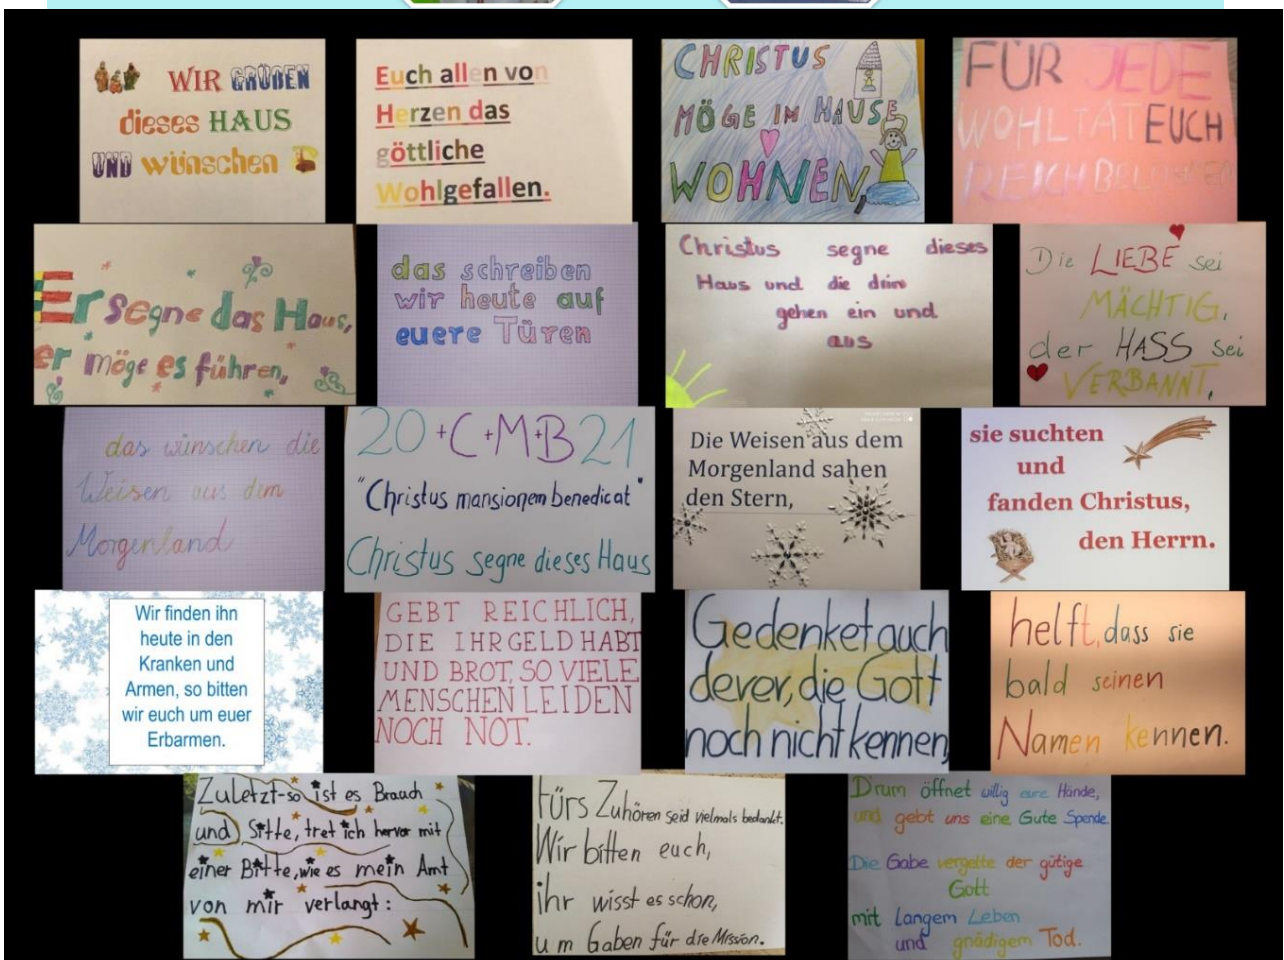 WIR GRÜßEN
dieses HAUS
UND wünschen
Euch allen von
Herzen das
göttliche
Wohlgefallen.
CHRISTUS
MÖGE IM HAUSE
WOHNEN,
FÜR JEDE
WOHLTAT EUCH
REICH BELOHNEN
Er segne das Haus,
er möge es führen,
das schreiben
wir heute auf
euere Türen
Christus segne dieses
Haus und die drin
gehen ein und
aus
Die LIEBE sei
MÄCHTIG,
der HASS sei
VERBANNT,
das wünschen die
Weisen aus dem
Morgenland
20+C+M+B21
"Christus mansionem benedicat"
Christus segne dieses Haus
Die Weisen aus dem
Morgenland sahen
den Stern,
sie suchten
und
fanden Christus,
den Herrn.
Wir finden ihn
heute in den
Kranken und
Armen, so bitten
wir euch um euer
Erbarmen.
GEBT REICHLICH,
DIE IHR GELD HABT
UND BROT, SO VIELE
MENSCHEN LEIDEN
NOCH NOT.
Gedenket auch
derer, die Gott
noch nicht kennen,
helft, dass sie
bald seinen
Namen kennen.
Zuletzt-so ist es Brauch
und Sitte, tret ich hervor mit
einer Bitte, wie es mein Amt
von mir verlangt:
Fürs Zuhören seid vielmals bedankt.
Wir bitten euch,
ihr wisst es schon,
um Gaben für die Mission.
Drum öffnet willig eure Hände,
und gebt uns eine Gute Spende.
Die Gabe vergelte der gütige
Gott
mit Langem Leben
und gnädigem Tod.